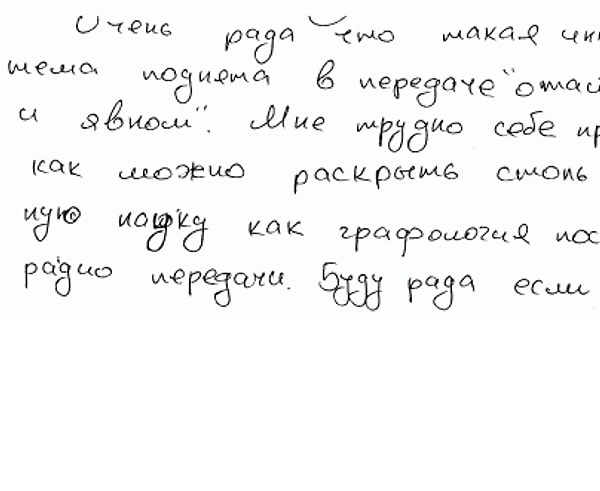 Очень рада что такая ин
тема поднята в передаче "о тай
и явном". Мне трудно себе пр
как можно раскрыть столь
ную науку как графология пос
радио передачи. Буду рада если